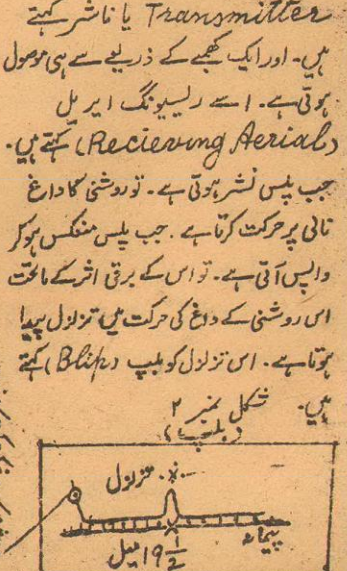 Transmitter یا ناشر کہتے
ہیں۔ اور ایک کھمبے کے ذریعے سے ہی موصول
ہوتی ہے۔ اسے ریسیونگ ایریل
(Recieving Aerial) کہتے ہیں۔
جب پلس نشر ہوتی ہے۔ تو روشنی کا داغ
نالی پر حرکت کرتا ہے۔ جب پلس منعکس ہو کر
واپس آتی ہے۔ تو اس کے برقی اثر کے ماتحت
اس روشنی کے داغ کی حرکت میں تزلزل پیدا
ہوتا ہے۔ اس تزلزل کو بلپ (Blip) کہتے
ہیں۔ شکل نمبر ۲
(بلپ)
تزلزل
پیمانہ
19 1/2 میل